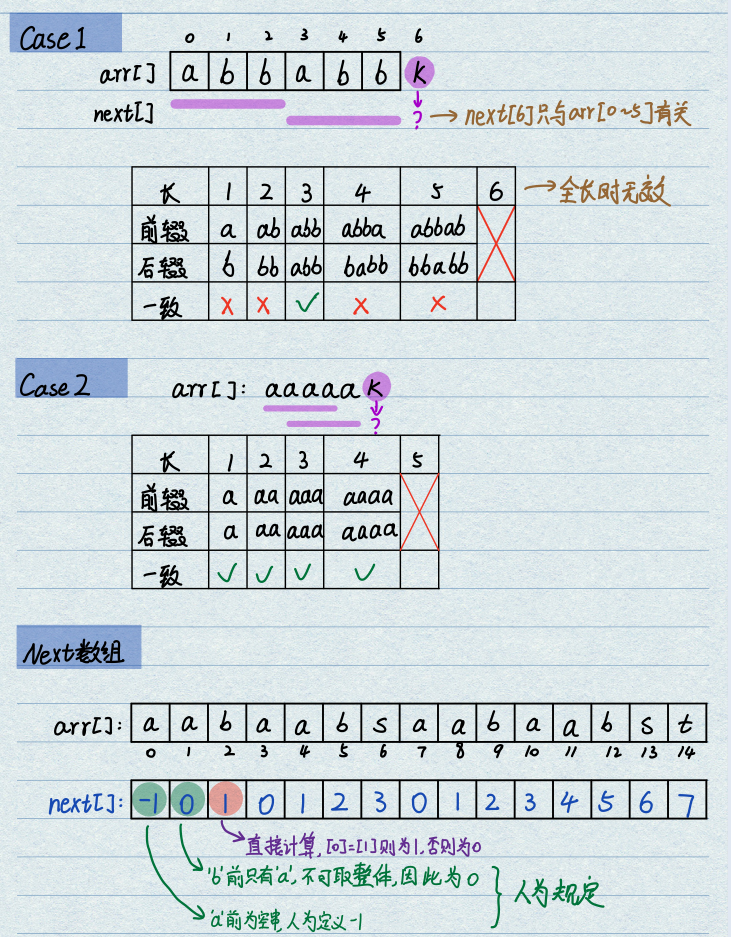 Case 1
0 1 2 3 4 5 6
arr[] a b b a b b k
next[] ? → next[6]只与arr[0~5]有关
长 1 2 3 4 5 6 → 全长时无效
前缀 a ab abb abba abbab
后缀 b bb abb babb bbabb
一致 × × ✓ × ×
Case 2
arr[]: aaaaak
?
长 1 2 3 4 5
前缀 a aa aaa aaaa
后缀 a aa aaa aaaa
一致 ✓ ✓ ✓ ✓
Next数组
arr[]: a a b a a b s a a b a a b s t
0 1 2 3 4 5 6 7 8 9 10 11 12 13 14
next[]: -1 0 1 0 1 2 3 0 1 2 3 4 5 6 7
直接计算,[0]=[1]则为1,否则为0
'b'前只有'a',不可取整件,因此为0
人为规定
'a'前为空串,人为定义-1